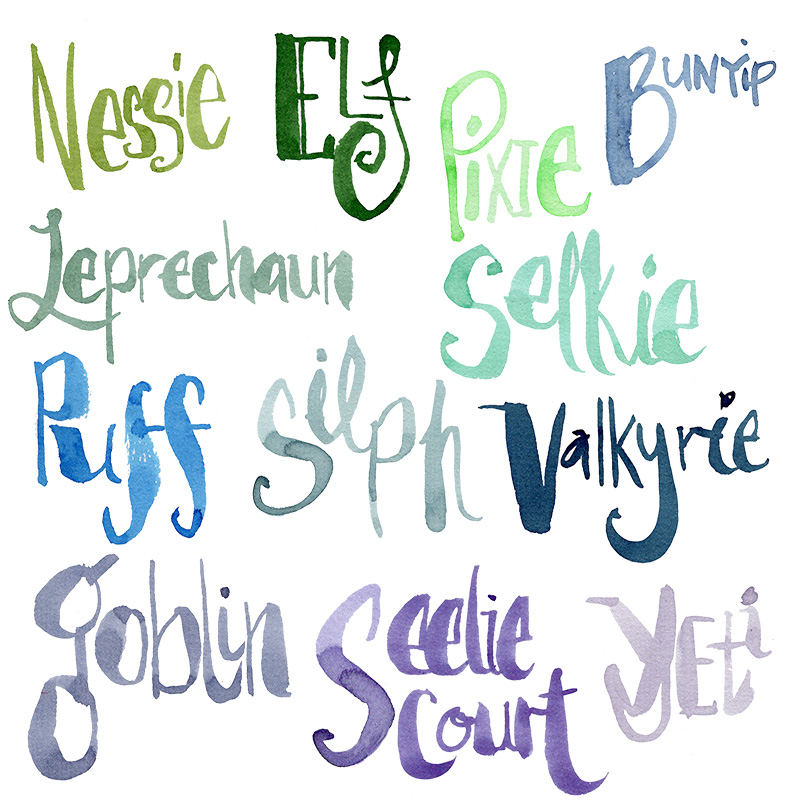 Nessie ELf PiXIe BUNYip
Leprechaun Selkie
Puff Silph Valkyrie
goblin Seelie court YEti